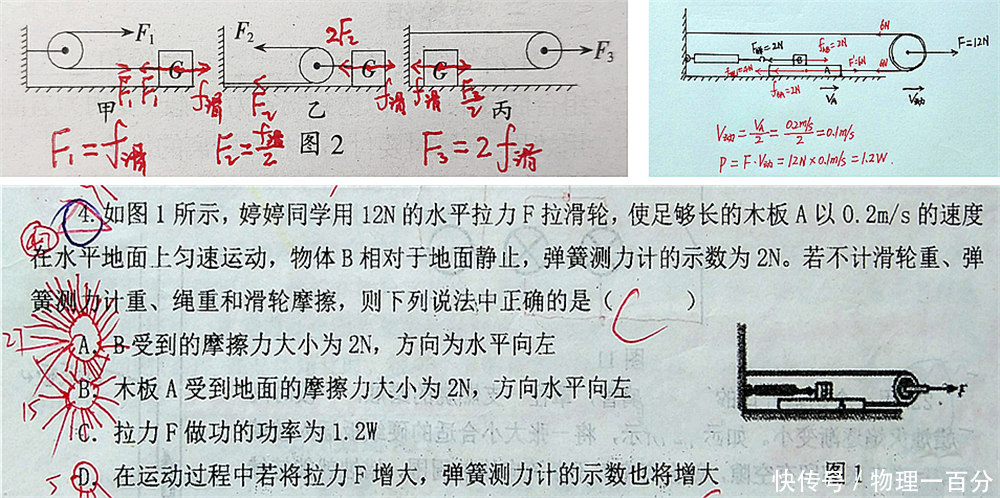 F₁
F₂
2F₂
F₃
G
G
G
F₁
F₁
f滑
F₂
f滑
f滑
F₃/2
甲
乙
丙
图2
F₁=f滑
F₂=f滑/2
F₃=2f滑
6N
F=12N
f_AB=2N
B
A
F=6N
6N
f_BA=2N
V_A
V动
V动=V_A/2=0.2m/s/2=0.1m/s
P=F·V动=12N×0.1m/s=1.2W.
4.如图1所示，婷婷同学用12N的水平拉力F拉滑轮，使足够长的木板A以0.2m/s的速度
在水平地面上匀速运动，物体B相对于地面静止，弹簧测力计的示数为2N。若不计滑轮重、弹
簧测力计重、绳重和滑轮摩擦，则下列说法中正确的是（ C ）
27
A．B受到的摩擦力大小为2N，方向为水平向左
B．木板A受到地面的摩擦力大小为2N，方向水平向左
15
C．拉力F做功的功率为1.2W
5
D．在运动过程中若将拉力F增大，弹簧测力计的示数也将增大
B
A
F
图1
快传号／物理一百分